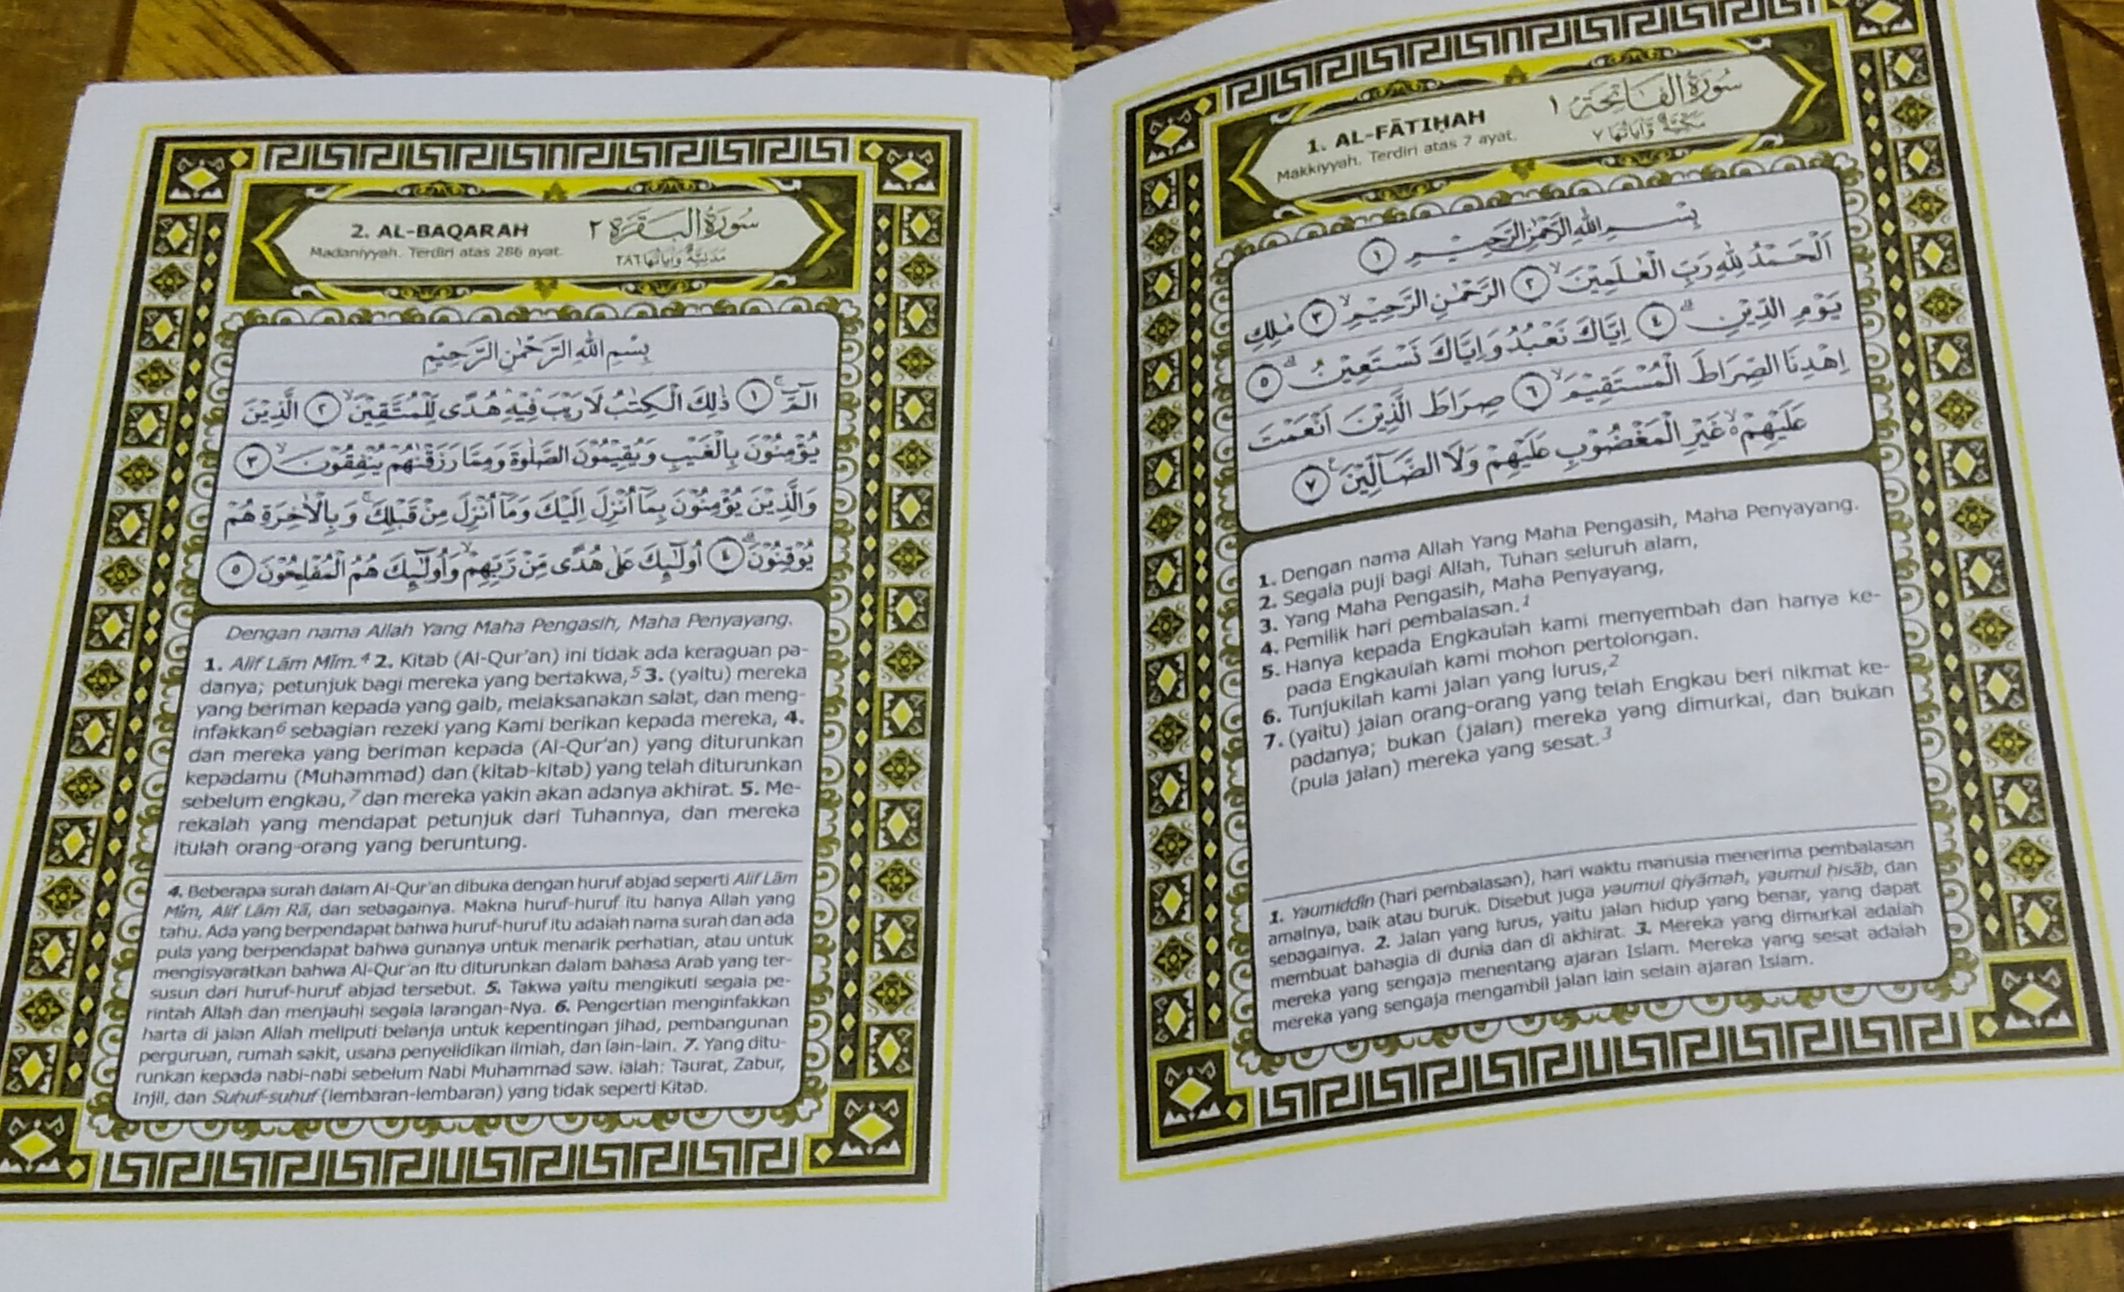 1. AL-FĀTIḤAH
Makkiyyah. Terdiri atas 7 ayat.
سُورَةُ الْفَاتِحَةِ ١
مَكِّيَّةٌ وَآيَاتُهَا ٧
بِسْمِ اللّٰهِ الرَّحْمٰنِ الرَّحِيْمِ ١
اَلْحَمْدُ لِلّٰهِ رَبِّ الْعٰلَمِيْنَۙ ٢ الرَّحْمٰنِ الرَّحِيْمِۙ ٣ مٰلِكِ
يَوْمِ الدِّيْنِۗ ٤ اِيَّاكَ نَعْبُدُ وَاِيَّاكَ نَسْتَعِيْنُۗ ٥
اِهْدِنَا الصِّرَاطَ الْمُسْتَقِيْمَۙ ٦ صِرَاطَ الَّذِيْنَ اَنْعَمْتَ
عَلَيْهِمْ ەۙ غَيْرِ الْمَغْضُوْبِ عَلَيْهِمْ وَلَا الضَّاۤلِّيْنَࣖ ٧
1. Dengan nama Allah Yang Maha Pengasih, Maha Penyayang.
2. Segala puji bagi Allah, Tuhan seluruh alam,
3. Yang Maha Pengasih, Maha Penyayang,
4. Pemilik hari pembalasan.1
5. Hanya kepada Engkaulah kami menyembah dan hanya ke-
pada Engkaulah kami mohon pertolongan.
6. Tunjukilah kami jalan yang lurus,2
7. (yaitu) jalan orang-orang yang telah Engkau beri nikmat ke-
padanya; bukan (jalan) mereka yang dimurkai, dan bukan
(pula jalan) mereka yang sesat.3
1. Yaumiddīn (hari pembalasan), hari waktu manusia menerima pembalasan
amalnya, baik atau buruk. Disebut juga yaumul qiyāmah, yaumul ḥisāb, dan
sebagainya. 2. Jalan yang lurus, yaitu jalan hidup yang benar, yang dapat
membuat bahagia di dunia dan di akhirat. 3. Mereka yang dimurkai adalah
mereka yang sengaja menentang ajaran Islam. Mereka yang sesat adalah
mereka yang sengaja mengambil jalan lain selain ajaran Islam.
2. AL-BAQARAH
Madaniyyah. Terdiri atas 286 ayat.
سُورَةُ الْبَقَرَةِ ٢
مَدَنِيَّةٌ وَآيَاتُهَا ٢٨٦
بِسْمِ اللّٰهِ الرَّحْمٰنِ الرَّحِيْمِ
الۤمّۤۚ ١ ذٰلِكَ الْكِتٰبُ لَا رَيْبَۛ فِيْهِۛ هُدًى لِّلْمُتَّقِيْنَۙ ٢ الَّذِيْنَ
يُؤْمِنُوْنَ بِالْغَيْبِ وَيُقِيْمُوْنَ الصَّلٰوةَ وَمِمَّا رَزَقْنٰهُمْ يُنْفِقُوْنَۙ ٣
وَالَّذِيْنَ يُؤْمِنُوْنَ بِمَآ اُنْزِلَ اِلَيْكَ وَمَآ اُنْزِلَ مِنْ قَبْلِكَۚ وَبِالْاٰخِرَةِ هُمْ
يُوْقِنُوْنَۗ ٤ اُولٰۤىِٕكَ عَلٰى هُدًى مِّنْ رَّبِّهِمْۙ وَاُولٰۤىِٕكَ هُمُ الْمُفْلِحُوْنَ ٥
Dengan nama Allah Yang Maha Pengasih, Maha Penyayang.
1. Alif Lām Mīm.4 2. Kitab (Al-Qur'an) ini tidak ada keraguan pa-
danya; petunjuk bagi mereka yang bertakwa,5 3. (yaitu) mereka
yang beriman kepada yang gaib, melaksanakan salat, dan meng-
infakkan6 sebagian rezeki yang Kami berikan kepada mereka, 4.
dan mereka yang beriman kepada (Al-Qur'an) yang diturunkan
kepadamu (Muhammad) dan (kitab-kitab) yang telah diturunkan
sebelum engkau,7 dan mereka yakin akan adanya akhirat. 5. Me-
rekalah yang mendapat petunjuk dari Tuhannya, dan mereka
itulah orang-orang yang beruntung.
4. Beberapa surah dalam Al-Qur'an dibuka dengan huruf abjad seperti Alif Lām
Mīm, Alif Lām Rā, dan sebagainya. Makna huruf-huruf itu hanya Allah yang
tahu. Ada yang berpendapat bahwa huruf-huruf itu adalah nama surah dan ada
pula yang berpendapat bahwa gunanya untuk menarik perhatian, atau untuk
mengisyaratkan bahwa Al-Qur'an itu diturunkan dalam bahasa Arab yang ter-
susun dari huruf-huruf abjad tersebut. 5. Takwa yaitu mengikuti segala pe-
rintah Allah dan menjauhi segala larangan-Nya. 6. Pengertian menginfakkan
harta di jalan Allah meliputi belanja untuk kepentingan jihad, pembangunan
perguruan, rumah sakit, usaha penyelidikan ilmiah, dan lain-lain. 7. Yang ditu-
runkan kepada nabi-nabi sebelum Nabi Muhammad saw. ialah: Taurat, Zabur,
Injil, dan Ṣuḥuf-ṣuḥuf (lembaran-lembaran) yang tidak seperti Kitab.